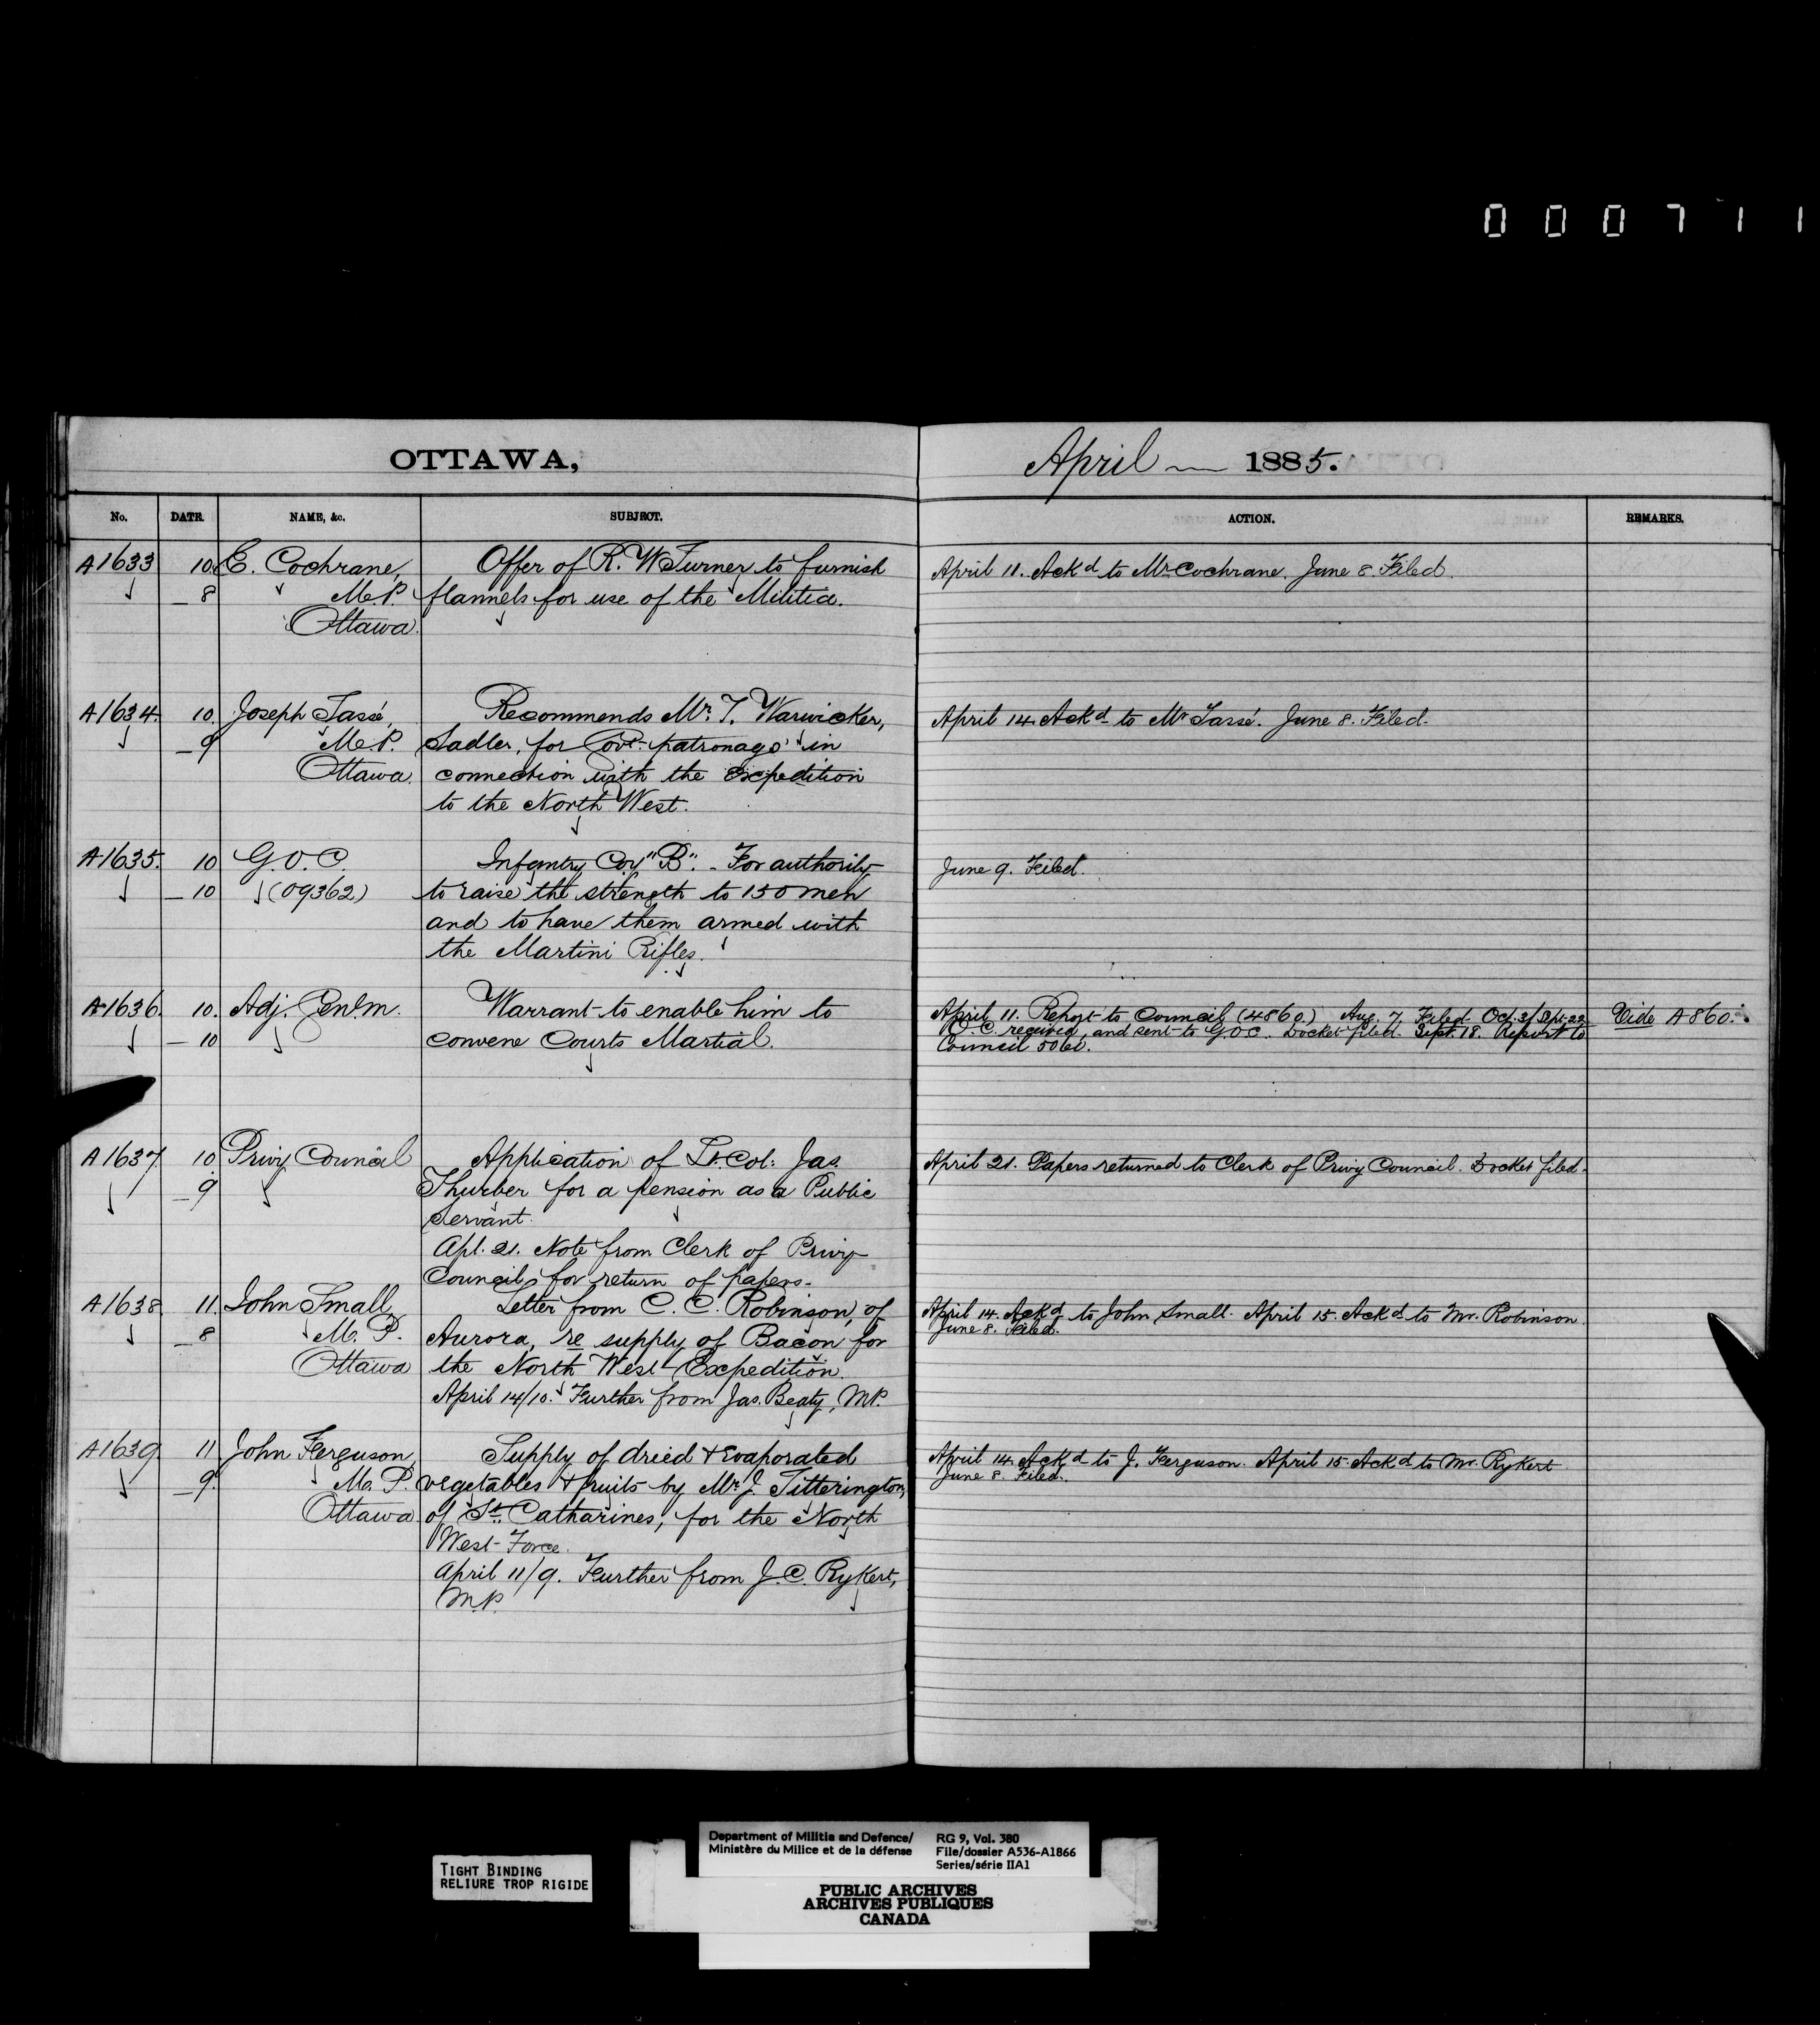 000711
OTTAWA,
April — 1885.
No. DATE. NAME, &c. SUBJECT. ACTION. REMARKS.
A1633 10. E. Cochrane, Offer of R. W Turner to furnish April 11. Ackd to Mr Cochrane. June 8. Filed.
8 M.P. flannels for use of the Militia.
Ottawa.
A1634. 10. Joseph Tassé, Recommends Mr. T. Warwicker, April 14. Ackd to Mr Tassé. June 8. Filed.
9 M.P. Sadler, for Govt. patronage in
Ottawa. connection with the Expedition
to the North West.
A1635. 10 G.O.C. Infantry Coy "B". - For authority June 9. Filed.
10 (09362) to raise the strength to 150 men
and to have them armed with
the Martini Rifles.
A1636. 10. Adj. Genl m. Warrant to enable him to April 11. Report to Council (4860.) Aug. 7 Filed. Oct. 3/Sept. 22 Vide A860.
10 convene Courts Martial. O.C. received, and sent to G.O.C. Docket filed. Sept. 18. Report to
Council
A1637. 10 Privy Council Application of Lt. Col: Jas. April 21. Papers returned to Clerk of Privy Council. Docket filed.
9 Thurber for a pension as a Public
Servant.
Apl. 21. Note from Clerk of Privy
Council, for return of papers.
A1638 11. John Small, Letter from C. C. Robinson, of April 14. Ackd to John Small. April 15. Ackd to Mr. Robinson.
8 M.P. Aurora, re supply of Bacon for June 8. Filed.
Ottawa the North West Expedition.
April 14/10. Further from Jas. Beaty, M.P.
A1639 11 John Ferguson, Supply of dried & Evaporated April 14. Ackd to J. Ferguson. April 15. Ackd to Mr. Rykert
9. M.P. vegetables & fruits by Mr. J. Titterington, June 8. Filed.
Ottawa of St. Catharines, for the North
West Force.
April 11/9. Further from J. C. Rykert,
M.P.
TIGHT BINDING
RELIURE TROP RIGIDE
Department of Militia and Defence/
Ministère du Milice et de la défense
RG 9, Vol. 380
File/dossier A536-A1866
Series/série IIA1
PUBLIC ARCHIVES
ARCHIVES PUBLIQUES
CANADA